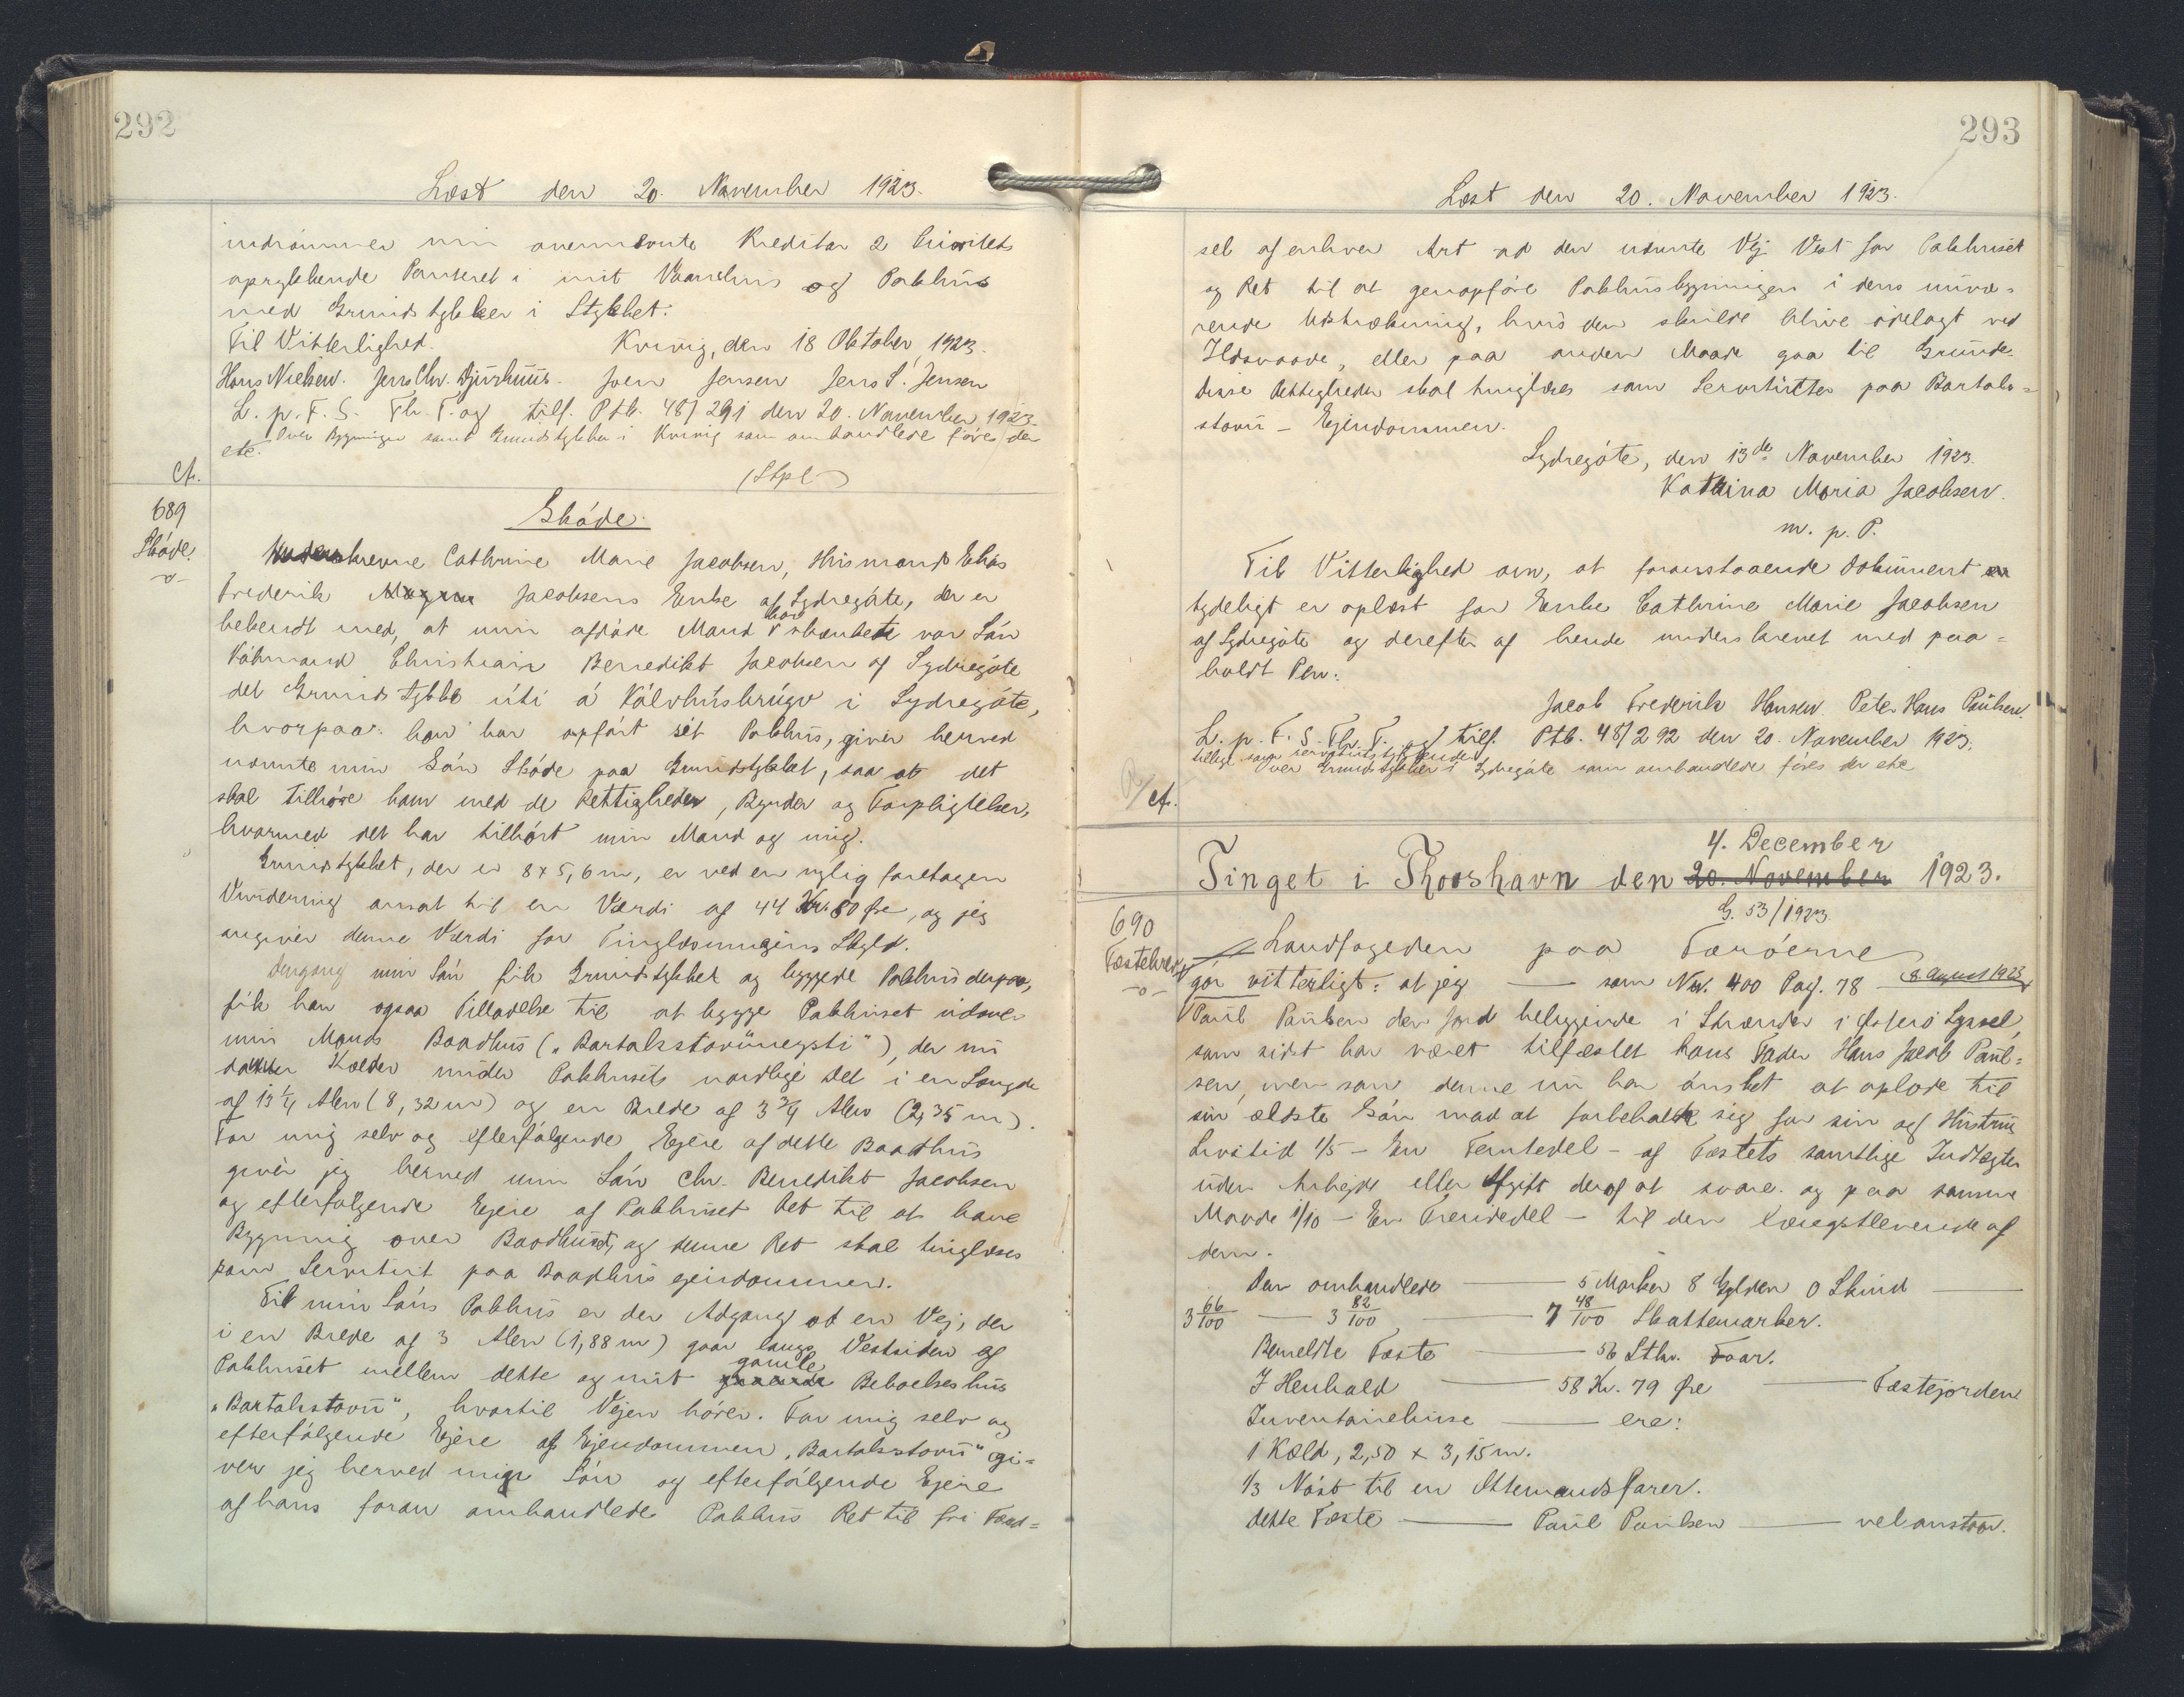 292
Læst den 20. November 1923.
indrømmer min ovennævnte Kreditor 2 Prioritets
oprykkende Panteret i mit Vaanhus og Pakhus
med Grundstykker i Stykket.
Til Vitterlighed. Kvivig, den 18 Oktober 1923.
Hans Nielsen. Jens Chr. Djurhuus. Joen Jensen Jens S. Jensen
L. p. F. S. Th. T. og tilf. Ptb. 48/291 den 20. November 1923.
Over Bygninger samt Grundstykker i Kvivig som omhandlede føres der
etc.
cfr.
(Stpl)
689
Skøde
Skøde.
Cathrine Marie Jacobsen, Husmand Elias
Frederik Jacobsens Enke af Sydregøte, der er
bekendt med, at min afdøde Mand har skænket vor Søn
Købmand Christian Benedikt Jacobsen af Sydregøte
det Grundstykke úti á Kálvhúsbrúgv i Sydregøte,
hvorpaa han har opført sit Pakhus, giver herved
nævnte min Søn Skøde paa Grundstykket, saa at det
skal tilhøre ham med de Rettigheder, Byrder og Forpligtelser,
hvormed det har tilhørt min Mand og mig.
Grundstykket, der er 8 x 5,6 m, er ved en nylig foretagen
Vurdering ansat til en Værdi af 44 Kr. 80 Øre, og jeg
angiver denne Værdi for Tinglæsningens Skyld.
Dengang min Søn fik Grundstykket og byggede Pakhus derpaa,
fik han ogsaa Tilladelse til at bygge Pakhuset udover
min Mands Baadhus („Bartalsstovuneysti"), der nu
danner Kælder under Pakhusets nordlige Del i en Længde
af 13 1/4 Alen (8,32 m) og en Brede af 3 3/4 Alen (2,35 m).
For mig selv og efterfølgende Ejere af dette Baadhus
giver jeg herved min Søn Chr. Benedikt Jacobsen
og efterfølgende Ejere af Pakhuset Ret til at have
Bygning over Baadhuset, og denne Ret skal tinglæses
som Servitut paa Baadhusejendommen.
Til min Søns Pakhus er der Adgang ad en Vej, der
i en Brede af 3 Alen (1,88 m) gaar langs Vestsiden af
Pakhuset mellem dette og mit gamle Beboelseshus
„Bartalsstovu", hvortil Vejen hører. For mig selv og
efterfølgende Ejere af Ejendommen „Bartalsstovu" gi=
ver jeg herved min Søn og efterfølgende Ejere
af hans foran omhandlede Pakhus Ret til fri Færd=
293
Læst den 20. November 1923.
sel af enhver Art ad den nævnte Vej Vest for Pakhuset
og Ret til at genopføre Pakhusbygningen i dens nuvæ=
rende Udstrækning, hvis den skulde blive ødelagt ved
Ildsvaade, eller paa anden Maade gaa til Grunde.
Disse Rettigheder skal tinglæses som Servitutter paa Bartals=
stovu - Ejendommen.
Sydregøte, den 13de November 1923.
Kathrina Maria Jacobsen.
m. p. P.
Til Vitterlighed om, at foranstaaende Dokument
tydeligt er oplæst for Enke Cathrine Marie Jacobsen
af Sydregøte og derefter af hende underskrevet med paa=
holdt Pen.
Jacob Frederik Hansen. Peter Hans Paulsen.
L. p. F. S. Th. T. og tilf. Ptb. 48/292 den 20. November 1923.
tillige som servitutstiftende
over Grundstykker i Sydregøte som omhandlede føres der etc
cfr.
4. December
Tinget i Thorshavn den 20. November 1923.
G. 53/1923.
690
Fæstebrev
Landfogeden paa Færøerne
gør vitterligt: at jeg — som Nr. 400 Pag. 78 — 8. August 1923
Paul Paulsen den Jord beliggende i Strænder i Østerø Syssel,
som sidst har været tilfæstet hans Fader Hans Jacob Paul=
sen, men som denne nu har ønsket at oplade til
sin ældste Søn mod at forbeholde sig for sin og Hustrus
Livstid 1/5 - En Femtedel - af Fæstets samtlige Indtægter
uden Arbejde eller Afgift deraf at svare og paa samme
Maade 1/10 - En Tiendedel - til den Længstlevende af
dem.
Den omhandlede — 5 Marker 8 Gylden 0 Skind —
3 66/100 — 3 82/100 — 7 48/100 Skattemarker.
Bemeldte Fæste — 56 Stkr. Faar.
I Henhold — 58 Kr. 79 Øre — Fæstejorden
Inventariehuse — ere:
1 Kæld, 2,50 x 3,15 m.
1/3 Nøst til en Ottemandsfarer.
dette Fæste — Paul Paulsen — vel anstaar.